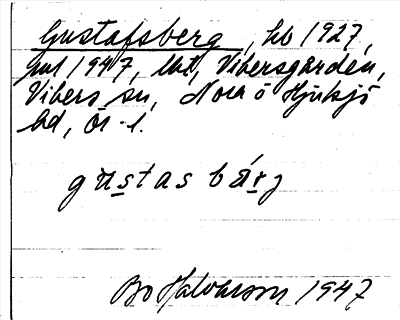 Gustafsberg, hb 1927,
jvl 1947, lht, Vibersgården,
Vibers sn, Nora o Hjulsjö
bd, Ör. l.
gustas bärj
Bo Halvarson 1947